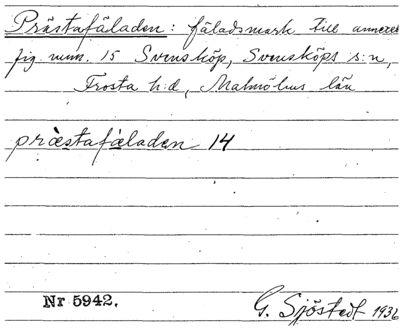 Prästafäladen: fäladsmark till annexet
fig. num. 15 Svensköp, Svensköps s:n,
Frosta h:d, Malmöhus län
præ̀stafǽladen 14
Nr 5942.
G. Sjöstedt 1936